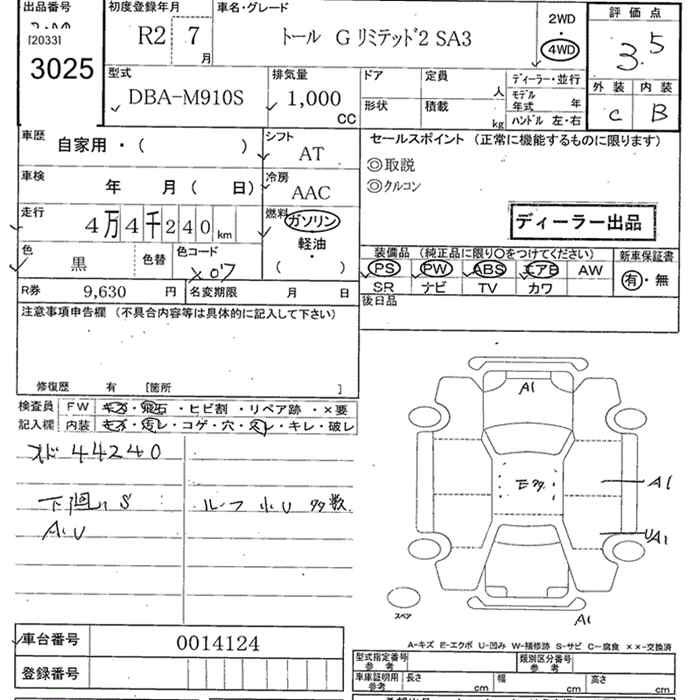 出品番号
[2033]
3025
初度登録年月
R2 7
月
車名・グレード
トール G リミテッド2 SA3
2WD
・
4WD
評価点
3.5
外装 内装
C B
型式
DBA-M910S
排気量
1,000
CC
ドア 定員
人
形状 積載
kg
ディーラー・並行
モデル
年式 年
ハンドル 左・右
車歴
自家用・( )
シフト
AT
車検
年 月( 日)
冷房
AAC
走行
4万4千240 km
燃料
ガソリン
軽油・
( )
色
黒
色替
色コード
X07
R券 9,630 円
名変期限 月 日
セールスポイント (正常に機能するものに限ります)
◎取説
◎クルコン
ディーラー出品
装備品 (純正品に限り○をつけてください)
PS PW ABS エアB AW
SR ナビ TV カワ
新車保証書
有・無
後日品
注意事項申告欄 (不具合内容等は具体的に記入して下さい)
修復歴 有 [箇所 ]
検査員
記入欄
FW キズ・飛石・ヒビ割・リペア跡・×要
内装 キズ・汚レ・コゲ・穴・スレ・キレ・破レ
オド 44240
下廻り S
A.U
ルーフ 小U 多数
A1
E多
A1
UA1
A1
スペア
A-キズ E-エクボ U-凹み W-補修跡 S-サビ C-腐食 ××-交換済
車台番号 0014124
登録番号
型式指定番号
参考
類別区分番号
参考
車庫証明用
参考
長さ cm
幅 cm
高さ cm